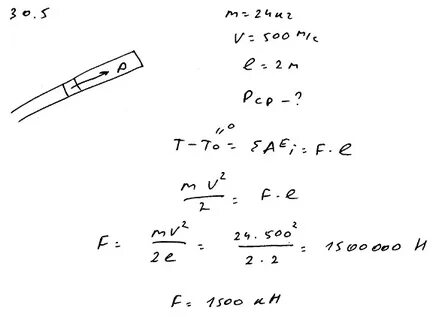 30.5
m = 24кг
V = 500 м/с
l = 2м
Pср - ?
P
T - T₀ = ΣAᴱᵢ = F · l
"0
mV²/2 = F · l
F = mV²/2l = 24 · 500²/2 · 2 = 1500000 Н
F = 1500 кН